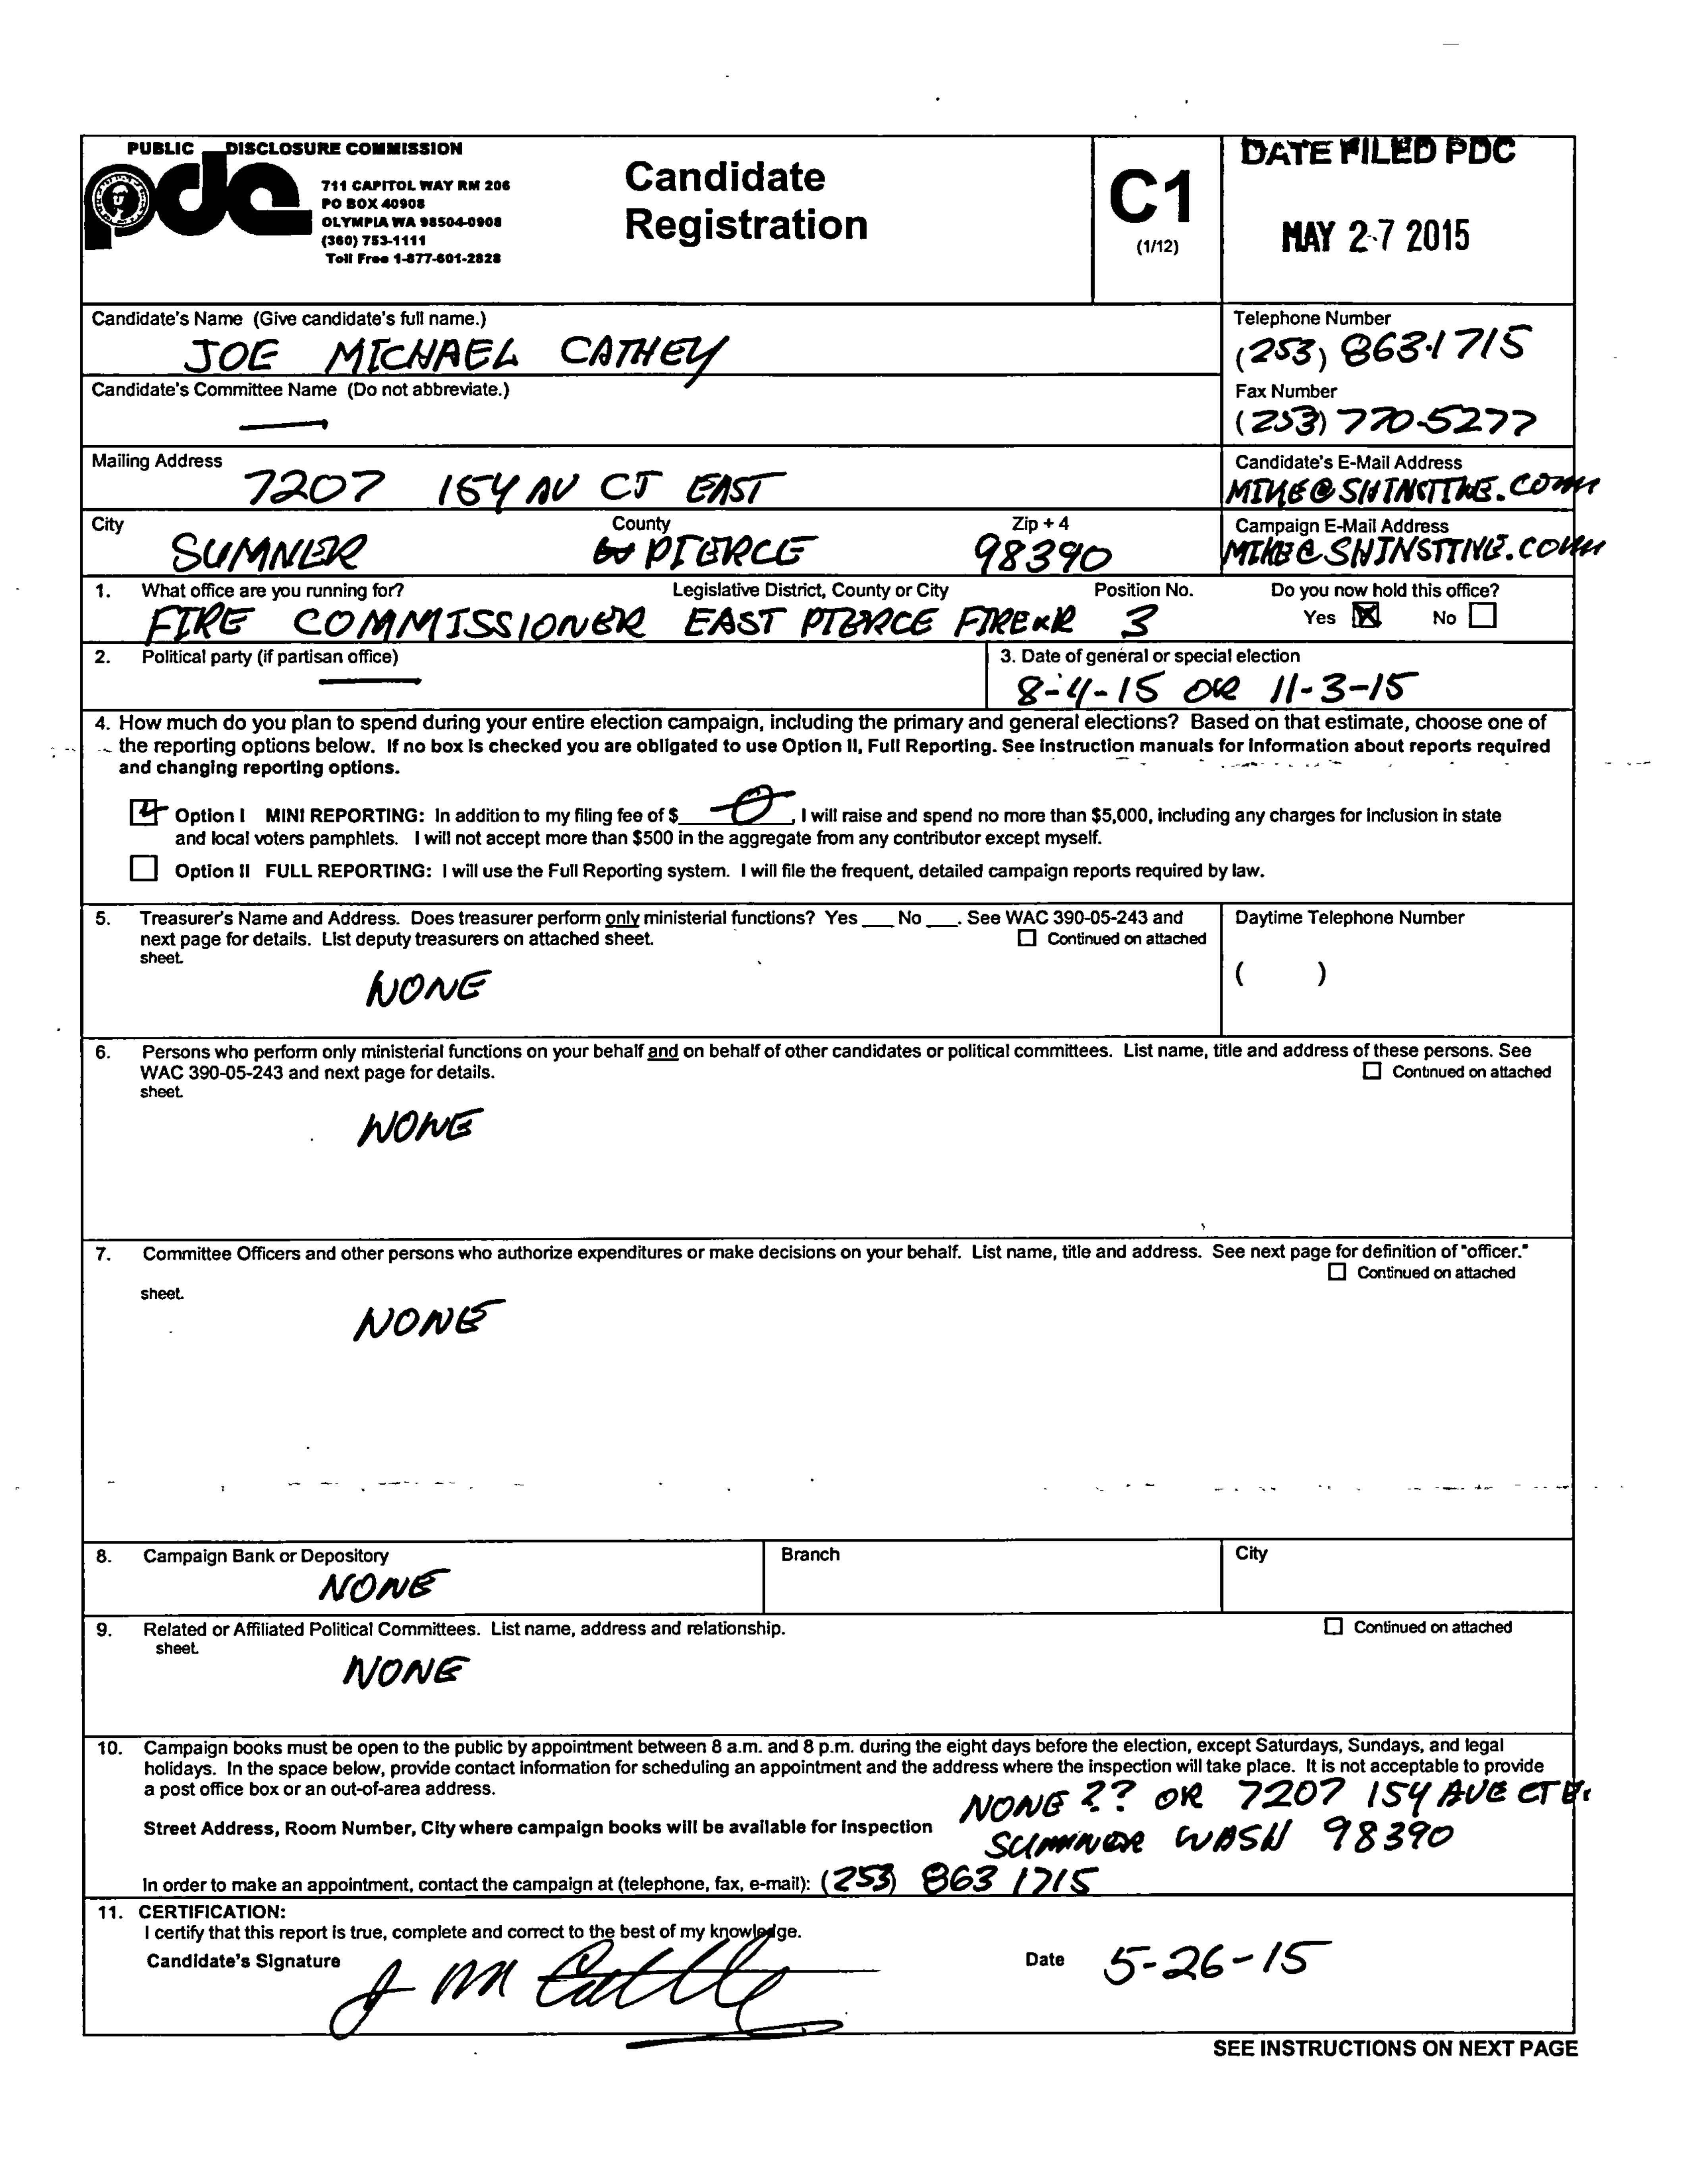 PUBLIC DISCLOSURE COMMISSION
pdc
711 CAPITOL WAY RM 206
PO BOX 40908
OLYMPIA WA 98504-0908
(360) 753-1111
Toll Free 1-877-601-2828
Candidate
Registration
C1
(1/12)
DATE FILED PDC
MAY 27 2015
Candidate's Name (Give candidate's full name.)
JOE MICHAEL CATHEY
Telephone Number
(253) 863-1715
Candidate's Committee Name (Do not abbreviate.)
—
Fax Number
(253) 770-5277
Mailing Address
7207 154 AV CT EAST
Candidate's E-Mail Address
City
SUMNER
County
PIERCE
Zip + 4
98390
Campaign E-Mail Address
1. What office are you running for?
FIRE COMMISSIONER
Legislative District, County or City
EAST PIERCE FIRE & R
Position No.
3
Do you now hold this office?
Yes ☒ No ☐
2. Political party (if partisan office)
—
3. Date of general or special election
8-4-15 OR 11-3-15
4. How much do you plan to spend during your entire election campaign, including the primary and general elections? Based on that estimate, choose one of
the reporting options below. If no box is checked you are obligated to use Option II, Full Reporting. See instruction manuals for information about reports required
and changing reporting options.
Option I MINI REPORTING: In addition to my filing fee of $ 0, I will raise and spend no more than $5,000, including any charges for inclusion in state
and local voters pamphlets. I will not accept more than $500 in the aggregate from any contributor except myself.
☐ Option II FULL REPORTING: I will use the Full Reporting system. I will file the frequent, detailed campaign reports required by law.
5. Treasurer's Name and Address. Does treasurer perform only ministerial functions? Yes ___ No ___. See WAC 390-05-243 and
next page for details. List deputy treasurers on attached sheet. ☐ Continued on attached
sheet.
NONE
Daytime Telephone Number
( )
6. Persons who perform only ministerial functions on your behalf and on behalf of other candidates or political committees. List name, title and address of these persons. See
WAC 390-05-243 and next page for details. ☐ Continued on attached
sheet.
NONE
7. Committee Officers and other persons who authorize expenditures or make decisions on your behalf. List name, title and address. See next page for definition of "officer."
☐ Continued on attached
sheet.
NONE
8. Campaign Bank or Depository
NONE
Branch
City
9. Related or Affiliated Political Committees. List name, address and relationship. ☐ Continued on attached
sheet.
NONE
10. Campaign books must be open to the public by appointment between 8 a.m. and 8 p.m. during the eight days before the election, except Saturdays, Sundays, and legal
holidays. In the space below, provide contact information for scheduling an appointment and the address where the inspection will take place. It is not acceptable to provide
a post office box or an out-of-area address.
NONE ?? OR 7207 154 AVE CT E.
Street Address, Room Number, City where campaign books will be available for inspection
SUMNER WASH 98390
In order to make an appointment, contact the campaign at (telephone, fax, e-mail): (253) 863 1715
11. CERTIFICATION:
I certify that this report is true, complete and correct to the best of my knowledge.
Candidate's Signature
J M Cathey
Date 5-26-15
SEE INSTRUCTIONS ON NEXT PAGE